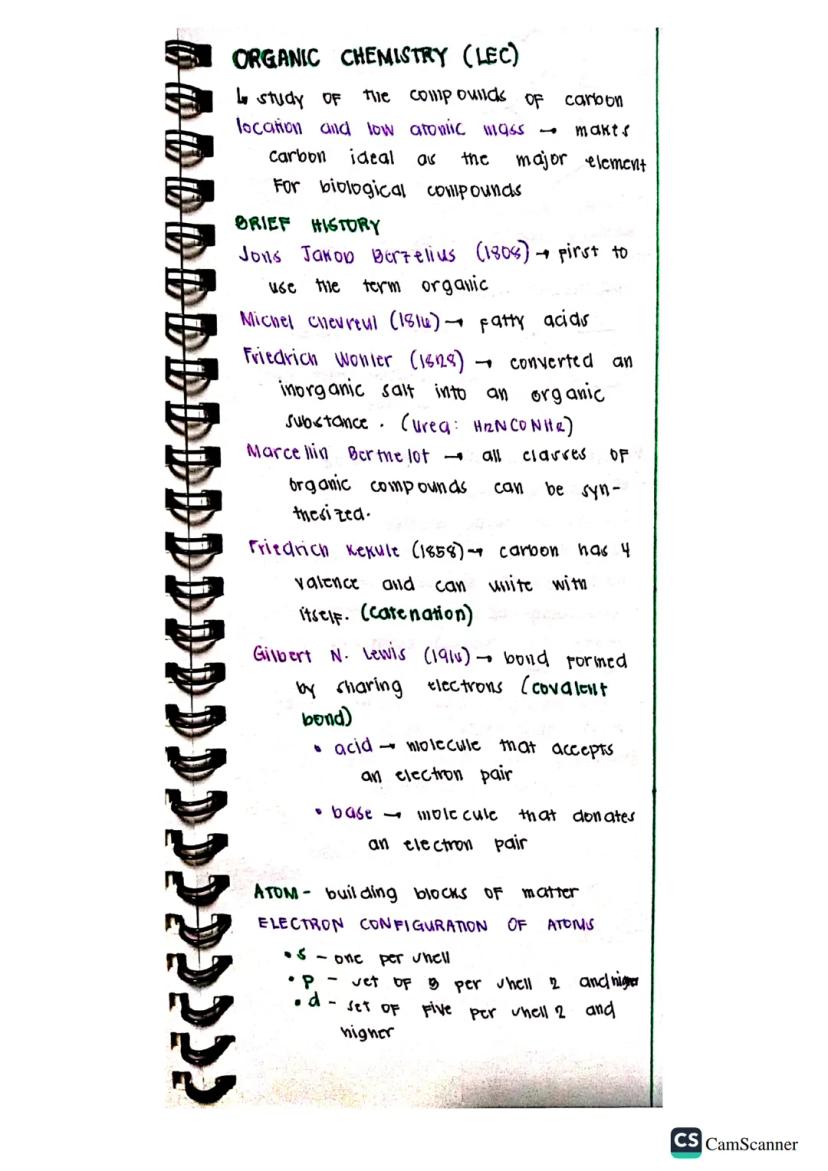 ORGANIC CHEMISTRY (LEC)
↳ study of the compounds of carbon
location and low atomic mass → makes
carbon ideal as the major element
for biological compounds
BRIEF HISTORY
Jons Jakob Berzelius (1808) → first to
use the term organic
Michel Chevreul (1816) → fatty acids
Friedrich Wohler (1828) → converted an
inorganic salt into an organic
substance. (Urea: H2NCONH2)
Marcellin Berthelot → all classes of
organic compounds can be syn-
thesized.
Friedrich Kekule (1858) → carbon has 4
valence and can unite with
itself. (catenation)
Gilbert N. Lewis (1916) → bond formed
by sharing electrons (covalent
bond)
• acid → molecule that accepts
an electron pair
• base → molecule that donates
an electron pair
ATOM - building blocks of matter
ELECTRON CONFIGURATION OF ATOMS
• s - one per shell
• p - set of 3 per shell 2 and higher
• d - set of five per shell 2 and
higher
CS CamScanner